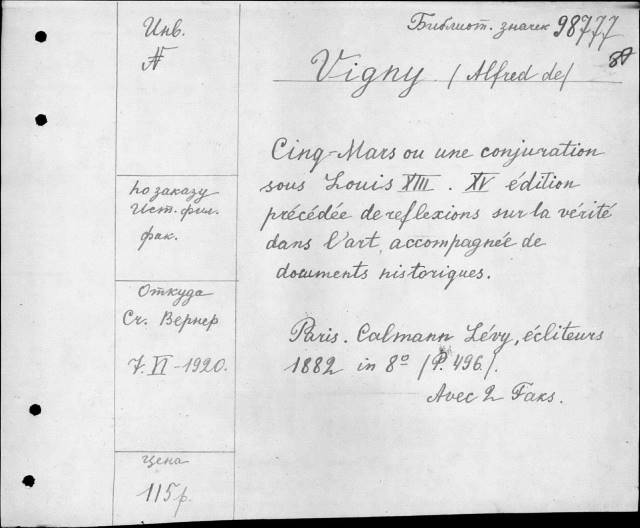 Инв.
№
по заказу
Ист. фил.
фак.
Откуда
Сч. Вернер
7.VI-1920.
цена
115р.
Библиот. значек 98777
Vigny (Alfred de)
Cinq-Mars ou une conjuration
sous Louis XIII. XV édition
précédée de reflexions sur la vérité
dans l'art, accompagnée de
documents historiques.
Paris. Calmann Lévy, écliteurs
1882 in 8º (P. 496).
Avec 2 Faks.